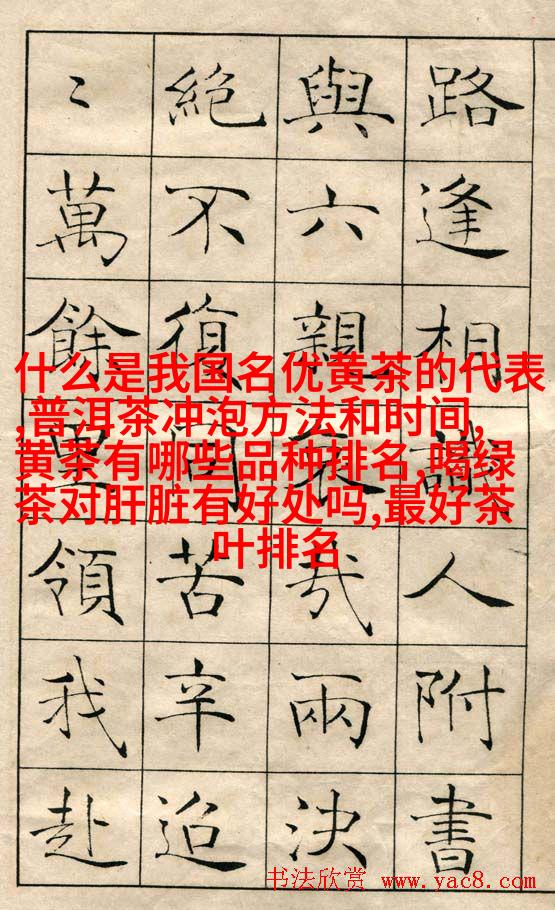 路逢相識人附書
與六親哀哉兩決
絕不復同苦辛迫
〻萬餘里領我赴
什么是我国名优黄茶的代表
,普洱茶冲泡方法和时间,
黄茶有哪些品种排名,喝绿
茶对肝脏有好处吗,最好茶
叶排名
书法欣赏 www.yac8.com